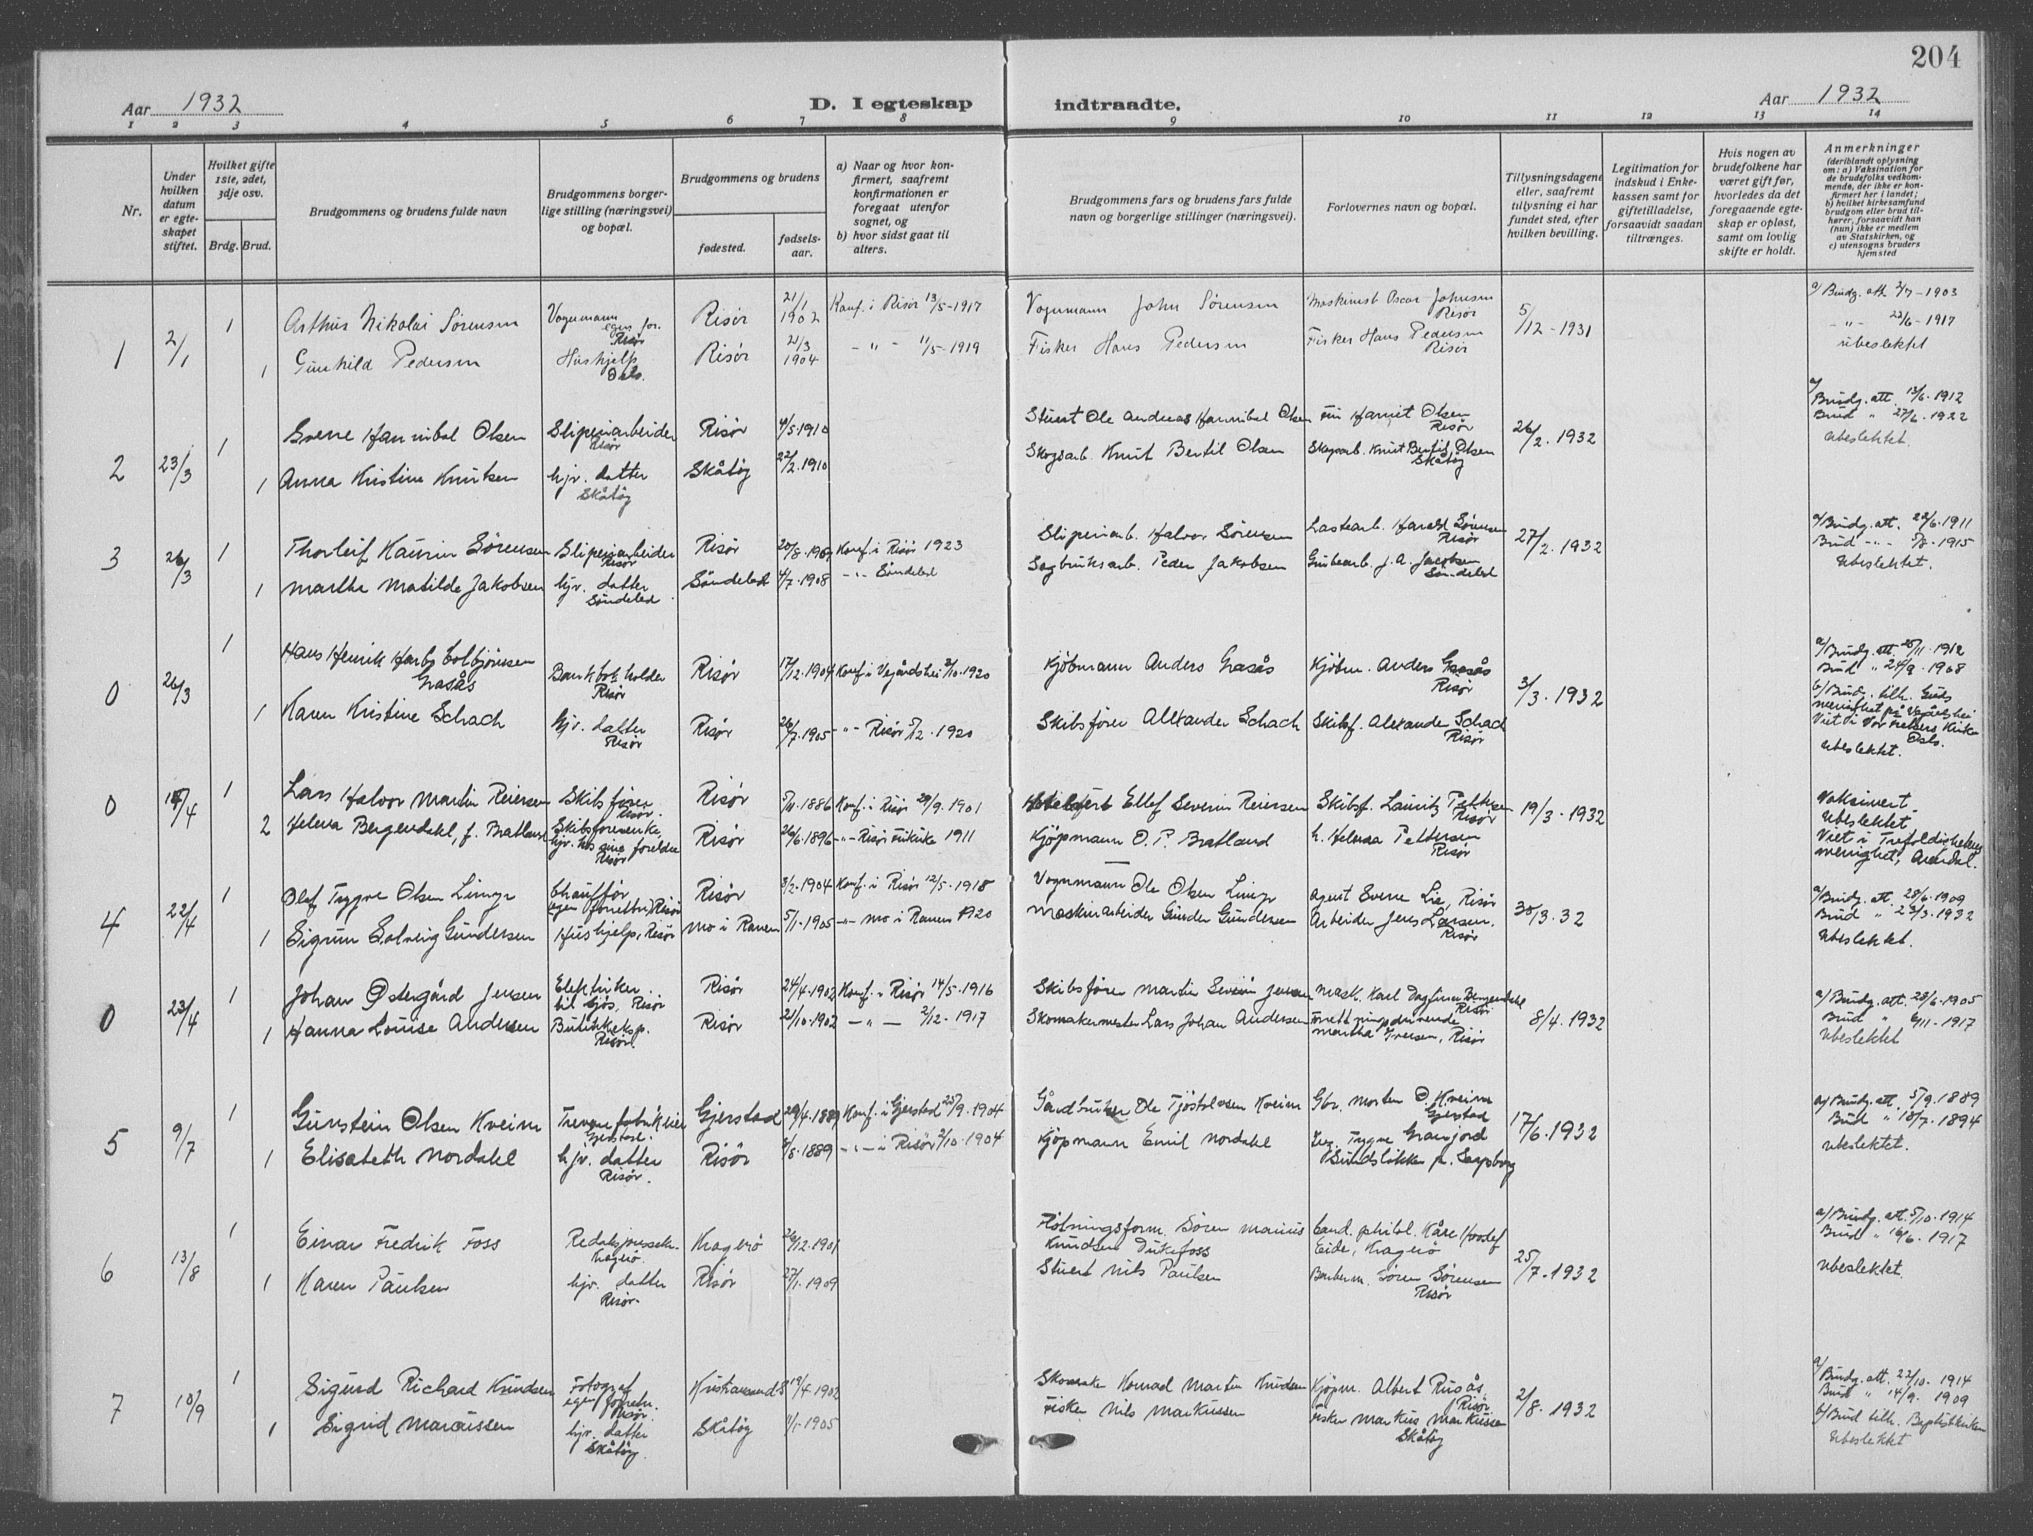 204
Aar 1932
D. I egteskap indtraadte.
Aar 1932
1 2 3 4 5 6 7 8 9 10 11 12 13 14
Nr.
Under hvilken datum er egteskapet stiftet.
Hvilket gifte 1ste, 2det, 3dje osv.
Brdg. Brud.
Brudgommens og brudens fulde navn
Brudgommens borgerlige stilling (næringsvei) og bopæl.
Brudgommens og brudens
fødested.
fødselsaar.
a) Naar og hvor konfirmert, saafremt konfirmationen er foregaat utenfor sognet, og
b) hvor sidst gaat til alters.
Brudgommens fars og brudens fars fulde navn og borgerlige stillinger (næringsvei).
Forlovernes navn og bopæl.
Tillysningsdagene eller, saafremt tillysning ei har fundet sted, efter hvilken bevilling.
Legitimation for indskud i Enkekassen samt for giftetilladelse, forsaavidt saadan tiltrænges.
Hvis nogen av brudefolkene har været gift før, hvorledes da det foregaaende egteskap er opløst, samt om lovlig skifte er holdt.
Anmerkninger (deriblandt oplysning om: a) Vaksination for de brudefolks vedkommende, der ikke er konfirmert her i landet; b) hvilket kirkesamfund brudgom eller brud tilhører, forsaavidt han (hun) ikke er medlem av Statskirken, og c) utensogns bruders hjemsted
1 2/1 1 Arthur Nikolai Sørensen Vognmann egen for. Risør Risør 21/1 1902 Konf. i Risør 13/5-1917 Vognmann John Sørensen Maskinist Oscar Johnsen Risør 5/12-1931 a/ Brudg. att. 2/7-1903
1 Gunhild Pedersen Hushjelp Oslo. Risør 21/3 1904 - " - 11/5-1919 Fisker Hans Pedersen Fisker Hans Pedersen Risør - " - 22/6-1917
ubeslektet
2 23/3 1 Sverre Hannibal Olsen Sliperiarbeider Risør Risør 4/5-1910 Stuert Ole Andreas Hannibal Olsen Olsen Risør 26/2-1932 a/ Brudg. att. 13/6-1912
1 Anna Kristine Knutsen hjv. datter Skåtøy Skåtøy 22/2-1910 Skogsarb. Knut Bertil Olsen Skogsarb. Knut Bertil Olsen Skåtøy Brud " 27/6-1922
Ubeslektet.
3 26/3 1 Thorleif Kaurin Sørensen Sliperiarbeider Risør Risør Konf. i Risør 1923 Sliperiarb. Halvor Sørensen Lastearb. Harald Sørensen Risør 27/2-1932 a/ Brudg. att. 1911
1 Martha Matilde Jakobsen hjv. datter Søndeled Søndeled 4/7-1908 - " - Søndeled Sagbruksarb. Peder Jakobsen Grubearb. J. A. Jacobsen Søndeled Brud - " - 5/8-1915
Ubeslektet.
0 26/3 1 Hans Henrik Colbjørnsen Grasås Bankbokholder Risør Risør 17/12-1904 Konf. i Vegårdshei 3/10-1920 Kjøbmann Anders Grasås Kjøbm. Anders Grasås Risør 3/3-1932 a/ Brudg. att. 1912
1 Karen Kristine Schach hjv. datter Risør Risør 26/7-1905 - " - Risør 5/12-1920 Skibsfører Alexander Schach Skibsf. Alexander Schach Risør Brud " 24/9-1908
b/ Brudg. tilh. Guds menighet på Vegårdshei
Viet i Vor Frelsers Kirke Oslo.
Ubeslektet.
0 1 Lars Halvor Martin Reiersen Skibsfører Risør. Risør 5/11-1886 Konf. i Risør 29/9-1901 Ellef Severin Reiersen Skibsf. Lauritz Pettersen Risør 19/3-1932 Vaksinert
2 Helena Bergendahl, f. Bratland Skibsførerenke, hjv. hos sine forelder Risør Risør 26/6-1896 - " - Risør Frikirke 1911 Kjøpmann O. P. Bratland h. Helena Pettersen Risør Ubeslektet
Viet i Trefoldighetens menighet, Arendal.
4 22/4 1 Olef Trygve Olsen Linge Chauffør egen forretn., Risør Risør 3/2-1904 Konf. i Risør 12/5-1918 Vognmann Ole Olsen Linge Agent Sverre Lie, Risør 30/3-32 a/ Brudg. att. 28/6-1909
1 Sigrun Solveig Gundersen Hushjelp, Risør Mo i Ranen 5/1-1905 - " - Mo i Ranen 1920 Maskinarbeider Gunder Gundersen Arbeider Jens Larsen. Risør Brud " 23/3-1932
Ubeslektet.
0 23/4 1 Johan Østergård Jensen Elektriker til sjøs, Risør Risør 24/4-1902 Konf. i Risør 14/5-1916 Skibsfører Martin Severin Jensen Mask. Karl Dagfinn Bergendahl Risør 8/4-1932 a/ Brudg. att. 28/6-1905
1 Hanna Louise Andersen Butikkeksp. Risør. Risør 22/10-1902 - " - 3/12-1917 Skomakermester Lars Johan Andersen Forretningsdrivende Martha Iversen, Risør Brud " 6/11-1917
Ubeslektet
5 9/7 1 Gunstein Olsen Kveim Trevarefabrikkeier Gjerstad. Gjerstad 29/4-1889 Konf. i Gjerstad 25/9-1904 Gårdbruker Ole Tjøstolvsen Kveim Gbr. Morten O. Kveim Gjerstad 17/6-1932 a/ Brudg. att. 5/9-1889
1 Elisabeth Nordahl hjv. datter Risør. Risør 3/8-1889 - " - i Risør 2/10-1904 Kjøpmann Emil Nordahl Trygve Granfjord Sundsløkken pr. Sarpsborg Brud " 18/7-1894
Ubeslektet.
6 13/8 1 Einar Fredrik Foss Redaksjonssekr. Kragerø. Kragerø 26/12-1901 Fløtningsform. Søren Marius Knudsen Dukefoss Cand. philol. Kåre Hoddef Eide, Kragerø 25/7-1932 a/ Brudg. att. 5/10-1914
1 Karen Paulsen hjv. datter Risør. Risør 27/1-1909 Stuert Nils Paulsen Barberm. Søren Sørensen Risør Brud " 16/6-1917
Ubeslektet.
7 10/9 1 Sigurd Richard Knudsen Fotograf egen forretn. Risør. Kristiansund S 19/4-1902 Skomaker Konrad Martin Knudsen Kjøpm. Albert Rusås, Risør 2/8-1932 a/ Brudg. att. 22/10-1914
1 Sigrid Marcussen hjv. datter Skåtøy. Skåtøy 1/1-1905 Fisker Nils Markussen Fisker Markus Markussen Skåtøy Brud " 14/9-1909
b/ Brud tilh. Baptistkirken
Ubeslektet